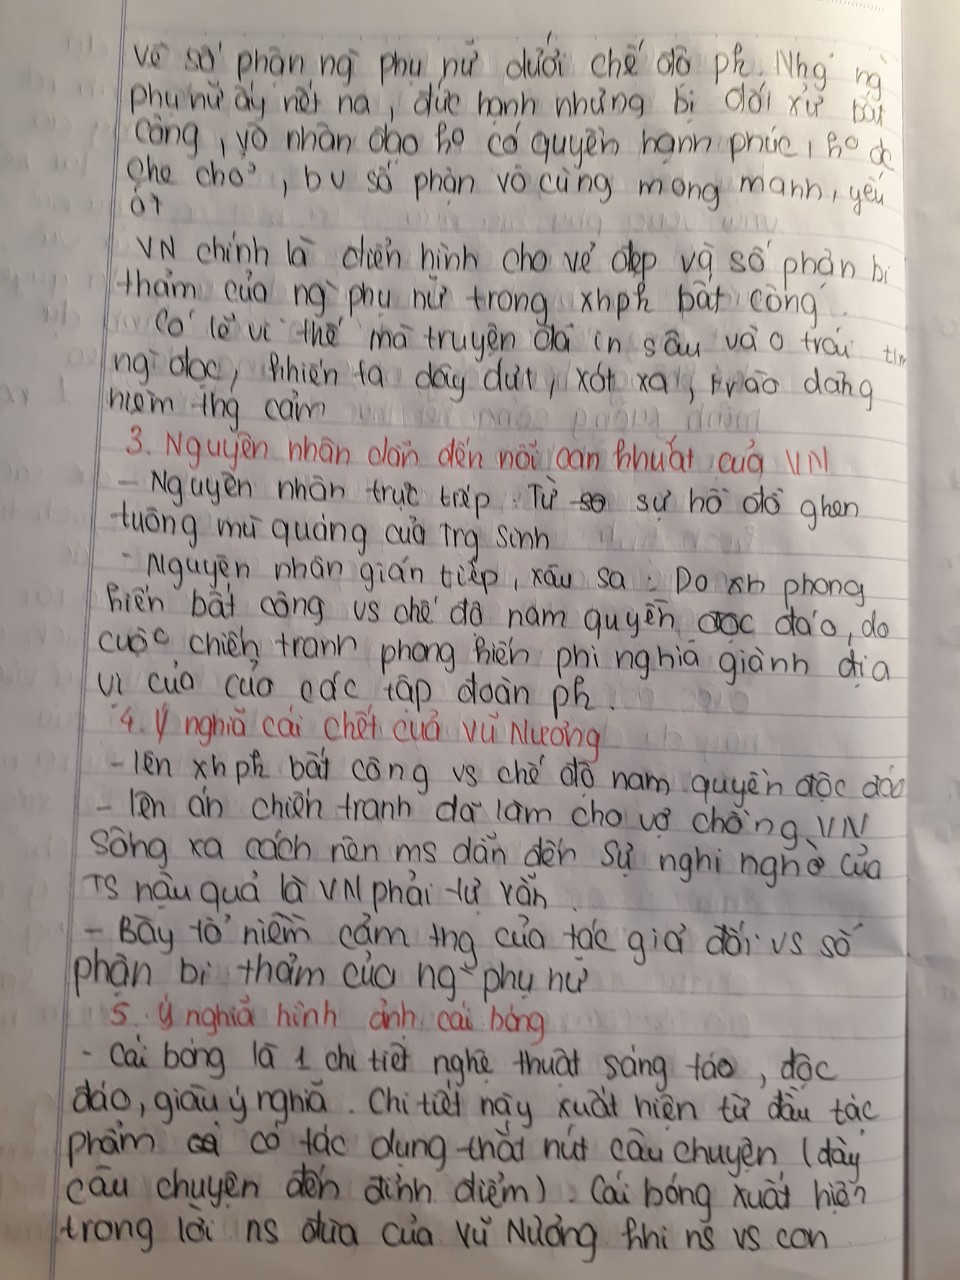 về số phận ng phụ nữ dưới chế độ pk. Nhg ng
phụ nữ ấy nết na, đức hạnh nhưng bị đối xử bất
công, vô nhân đạo ko có quyền hạnh phúc, ko đc
che chở, bv số phận vô cùng mong manh, yếu
ớt
VN chính là điển hình cho vẻ đẹp và số phận bi
thảm của ng phụ nữ trong xhpk bất công.
Có lẽ vì thế mà truyện đã in sâu vào trái tim
ng đọc, khiến ta day dứt, xót xa, trào dâng
niềm thg cảm
3. Nguyên nhân dẫn đến nỗi oan khuất của VN
- Nguyên nhân trực tiếp: Từ sự hồ đồ ghen
tuông mù quáng của Trg Sinh
- Nguyên nhân gián tiếp, xâu sa: Do xh phong
kiến bất công vs chế độ nam quyền độc đáo, do
cuộc chiến tranh phong kiến phi nghĩa giành địa
vị của của các tập đoàn pk.
4. Ý nghĩa cái chết của Vũ Nương
- lên xhpk bất công vs chế độ nam quyền độc đáo
- lên án chiến tranh đã làm cho vợ chồng VN
sống xa cách nên ms dẫn đến sự nghi ngờ của
TS hậu quả là VN phải tự vẫn.
- Bày tỏ niềm cảm thg của tác giả đối vs số
phận bi thảm của ng phụ nữ
5. Ý nghĩa hình ảnh cái bóng
- Cái bóng là 1 chi tiết nghệ thuật sáng táo, độc
đáo, giàu ý nghĩa. Chi tiết này xuất hiện từ đầu tác
phẩm có tác dụng thắt nút câu chuyện (đẩy
câu chuyện đến đỉnh điểm). Cái bóng xuất hiện
trong lời ns đùa của Vũ Nương khi ns vs con